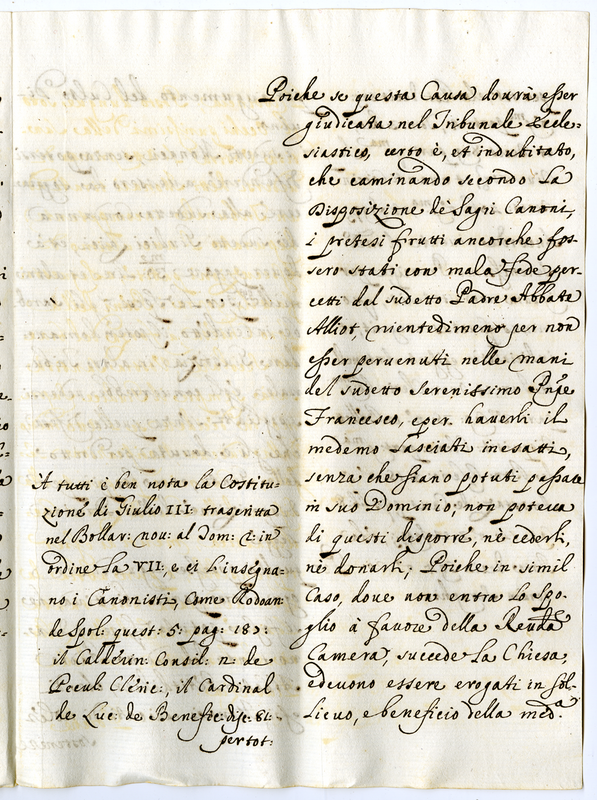 Poiche se questa Causa dourà esser
giudicata nel Tribunale Eccle=
siastico, certo è, et indubitato,
che caminando secondo La
Disposizione de Sagri Canoni,
i pretesi frutti ancorche fos=
sero stati con mala fede per=
cetti dal sudetto Padre Abbate
Alliot, nientedimeno per non
esser peruenuti nelle mani
del sudetto Serenissimo Pnpe
Francesco, e per hauerli il
medemo Lasciati inesatti,
senza che siano potuti passare
in suo Dominio, non poteua
di questi disporre, nè cederli,
nè donarli; Poiche in simil
Caso, doue non entra Lo Spo=
glio à fauore della Reuda
Camera, succede La Chiesa,
e deuono essere erogati in sol=
lieuo, e beneficio della meda.
A tutti è ben nota la Costitu=
zione di Giulio III: trascritta
nel Bollar: nou: al Tom: 1: in
ordine La VII: e ci L'insegna=
no i Canonisti, Come Rodoan:
de Spol: quest: 5: pag: 187:
il Calderin: Consil: n: de
Pecul: Cleric:, il Cardinal
de Luc: de Benefic: disc: 81:
per tot: